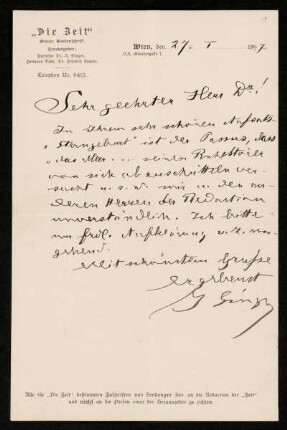 1
„Die Zeit"
Wiener Wochenschrift
Herausgeber:
Professor Dr. I. Singer,
Hermann Bahr, Dr. Heinrich Kanner.
Telephon Nr. 6415.
Wien, den 27. I 1897
IX/3, Günthergasse 1.
Sehr geehrter Herr Dr.!
In Ihrem sehr schönen Aufsatz
ist der Passus, dass
„das Meer ... seinen
von sich abzuschütteln ver-
sucht u. s. w. mir u. den an-
deren Herren der Redaction
unverständlich. Ich bitte
um frdl. Aufklärung u. z. um-
gehend.
Mit schönstem Grusse
ergebenst
I Singer
Alle für „Die Zeit" bestimmten Zuschriften und Sendungen sind an die Redaction der „Zeit"
und nicht an die Person eines der Herausgeber zu richten.